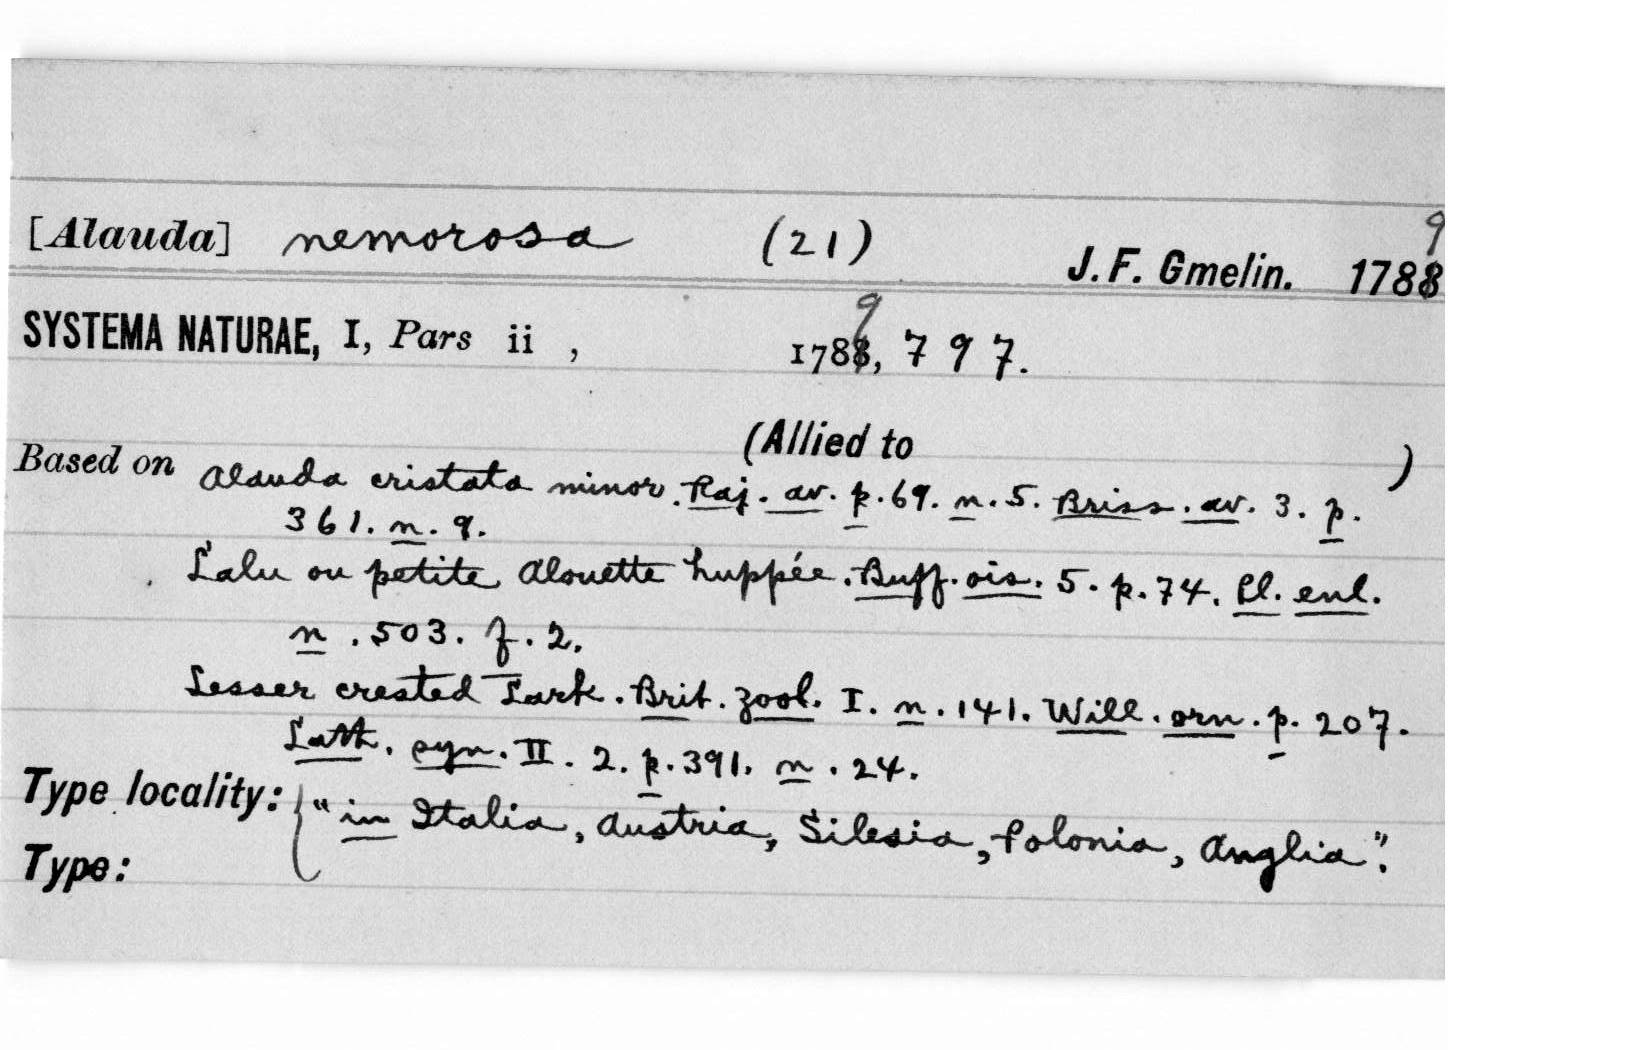 [Alauda] nemorosa (21) J. F. Gmelin. 1789
SYSTEMA NATURAE, I, Pars ii , 1789, 797.
(Allied to )
Based on Alauda cristata minor. Raj. av. p. 69. n. 5. Briss. av. 3. p.
361. n. 9.
Lalu ou petite Alouette huppée. Buff. ois. 5. p. 74. Pl. enl.
n. 503. f. 2.
Lesser crested Lark. Brit. zool. I. n. 141. Will. orn. p. 207.
Lath. syn. II. 2. p. 391. n. 24.
Type locality: { "in Italia, Austria, Silesia, Polonia, Anglia".
Type: